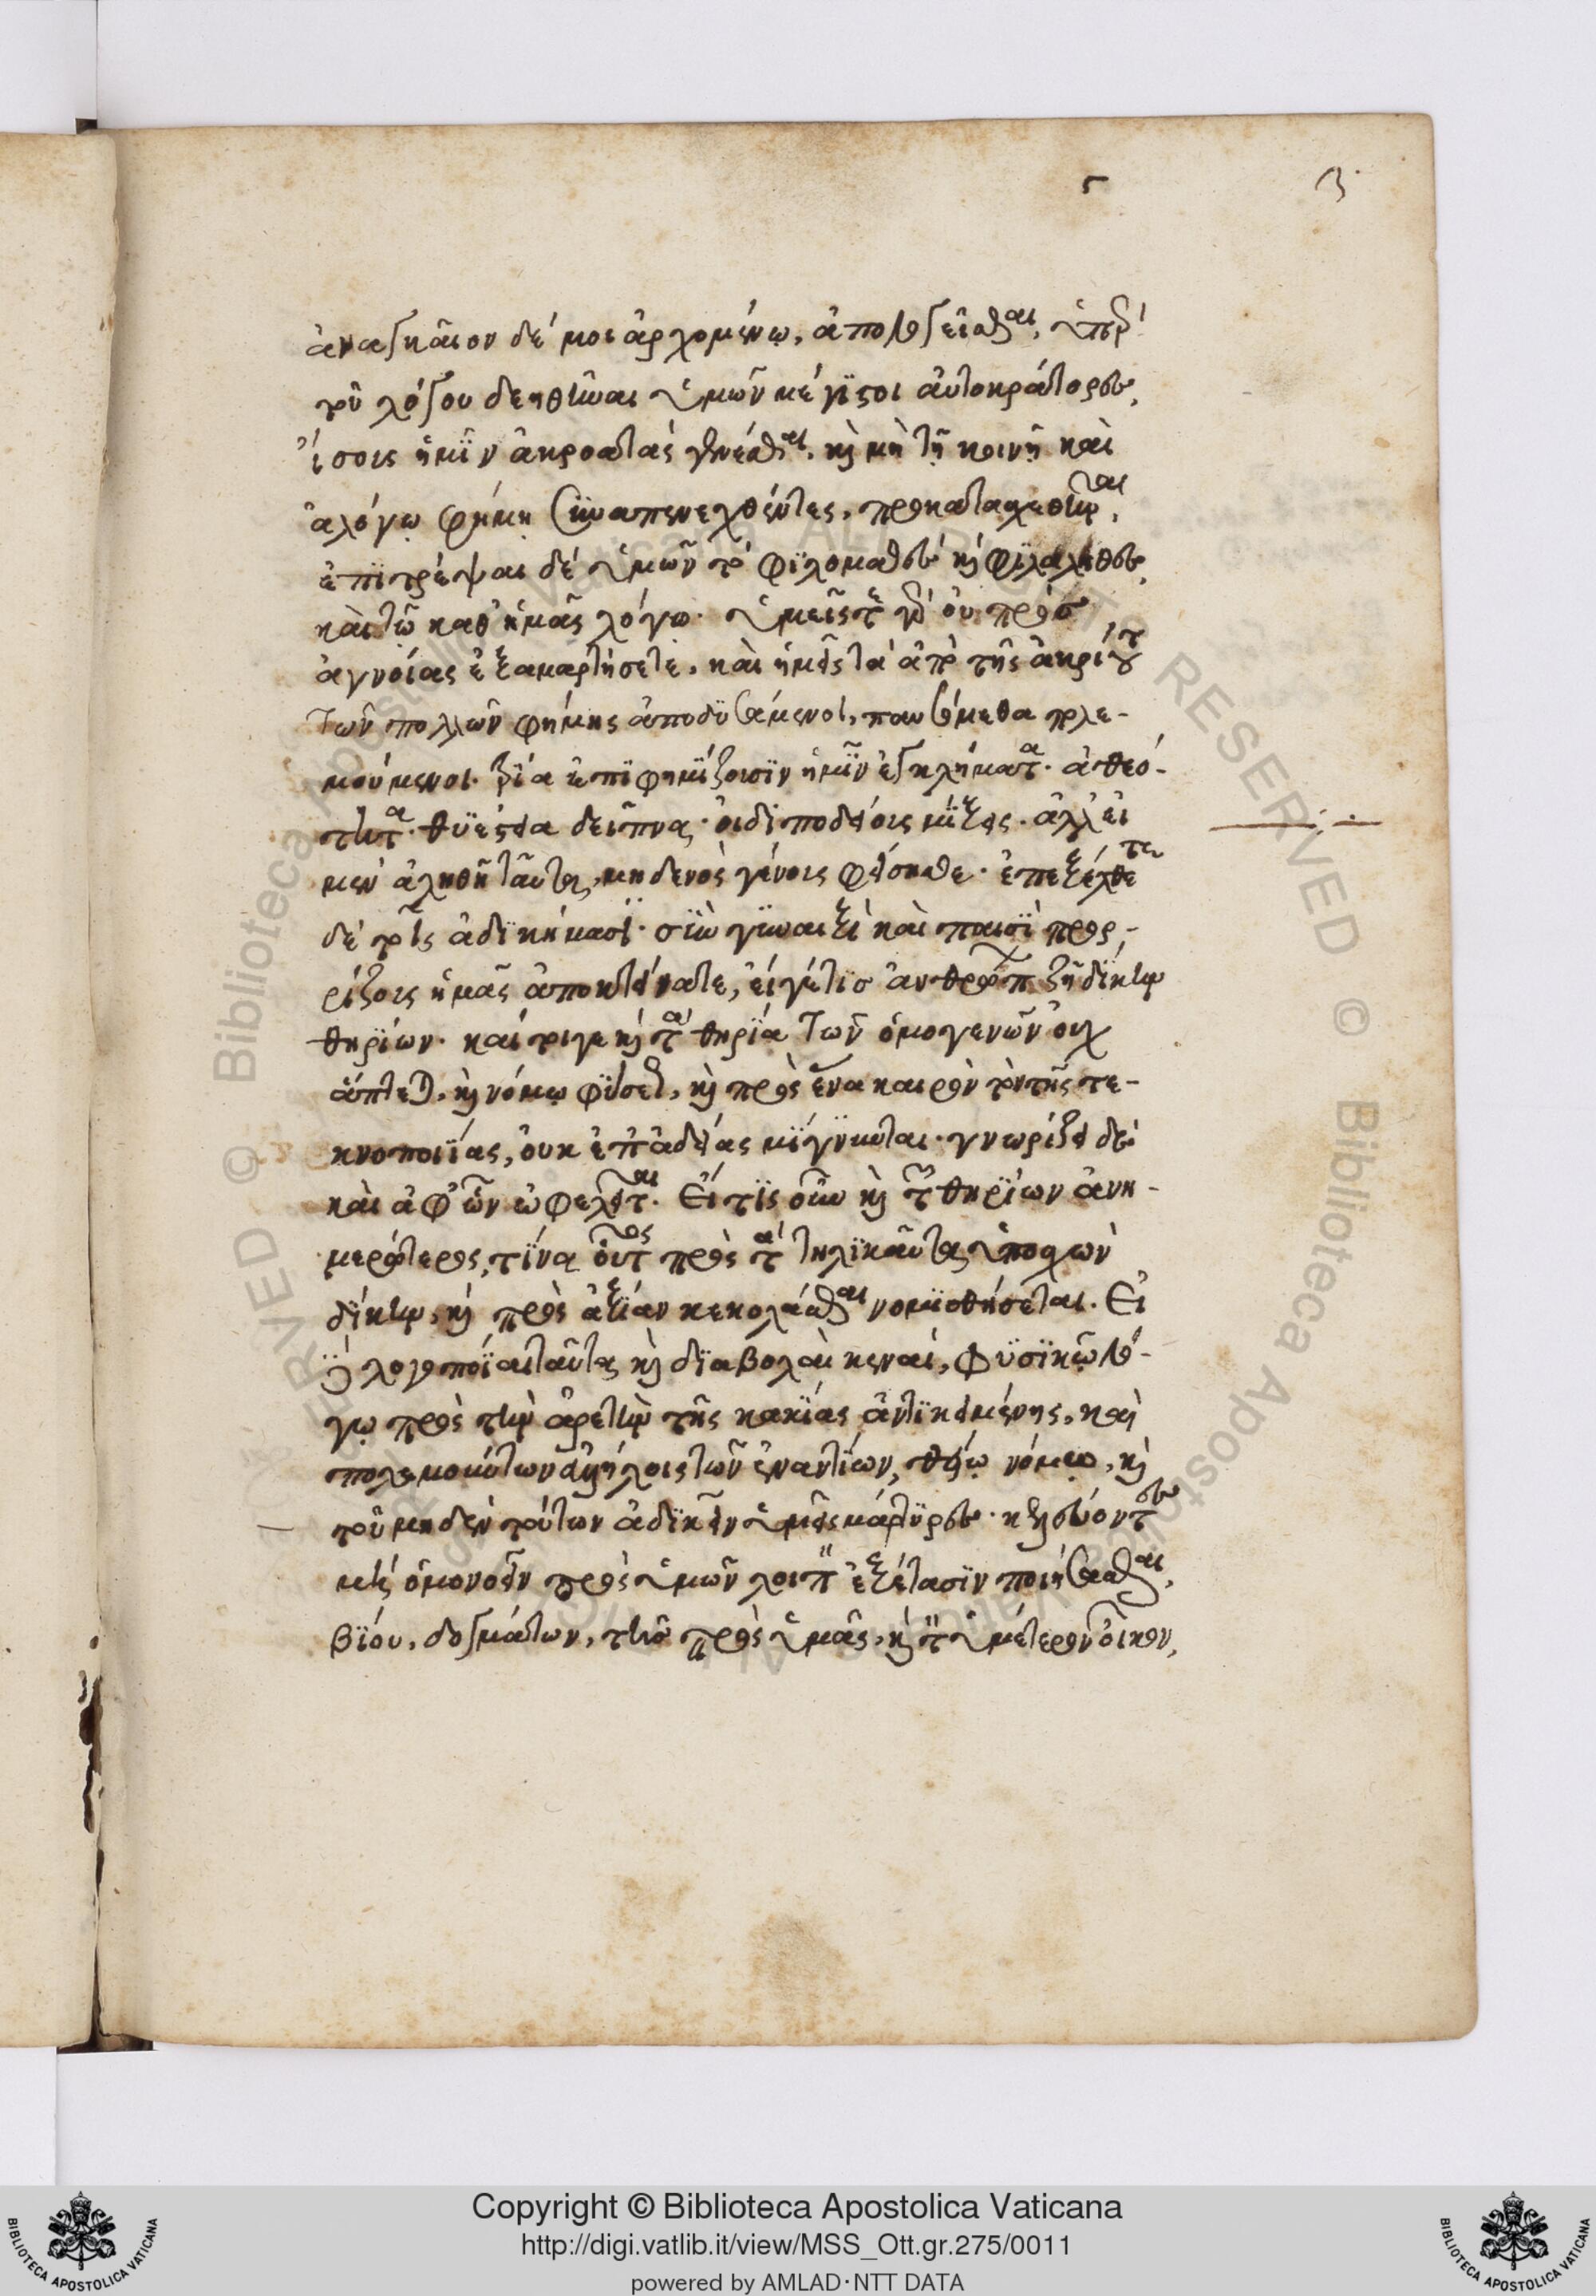 3
ἀναγκαῖον δέ μοι ἀρχομένῳ, ἀπολογεῖσθαι, ὑπὲρ
τοῦ λόγου δεηθῆναι ὑμῶν μέγιστοι αὐτοκράτορες,
ἴσοις ἡμῖν ἀκροατὰς γενέσθαι. καὶ μὴ τῇ κοινῇ καὶ
ἀλόγῳ φήμῃ συναπενεχθέντες, προκατασχεθῆναι,
ἐπιτρέψαι δὲ ὑμῶν τὸ φιλομαθὲς καὶ φιλάληθες,
καὶ τῷ καθ' ἡμᾶς λόγῳ. ὑμεῖς τε γὰρ οὐ πρὸς
ἀγνοίας ἐξαμαρτήσετε, καὶ ἡμεῖς τὰ ἀπὸ τῆς ἀκρίτου
τῶν πολλῶν φήμης ἀποδυσάμενοι, παυσόμεθα πολε-
μούμενοι. τρία ἐπιφημίζουσιν ἡμῖν ἐγκλήματα. ἀθεό-
τητα. θυέστεια δεῖπνα. οἰδιποδείοις μίξεις. ἀλλ' εἰ
μὲν ἀληθῆ ταῦτα, μηδενὸς γένοις φείσησθε. ἐπεξέλθετε
δὲ τοῖς ἀδικήμασι. σὺν γυναιξὶ καὶ παισὶ προρ-
ρίζοις ἡμᾶς ἀποκτείνατε, εἴ γέ τις ἀνθρώπων ζῇ δίκην
θηρίων. καί τοι γε καὶ τὰ θηρία τῶν ὁμογενῶν οὐχ
ἅπτεται, καὶ νόμῳ φύσεως, καὶ πρὸς ἕνα καιρὸν τὸν τῆς τε-
κνοποιίας, οὐκ ἐπ' ἀδείας μίγνυνται. γνωρίζει δὲ
καὶ ἀφ' ὧν ὠφελεῖται. Εἴ τις οὖν καὶ τῶν θηρίων ἀνη-
μερώτερος, τίνα οὗτος πρὸς τὰ τηλικαῦτα ὑποσχὼν
δίκην, καὶ πρὸς ἀξίαν κεκολάσθαι νομισθήσεται. Εἰ
δὲ λογοποιίαι ταῦτα καὶ διαβολαὶ κεναί, φυσικῷ λό-
γῳ πρὸς τὴν ἀρετὴν τῆς κακίας ἀντικειμένης, καὶ
πολεμούντων ἀλλήλοις τῶν ἐναντίων, θείῳ νόμῳ, καὶ
τοῦ μηδὲν τούτων ἀδικεῖν ὑμεῖς μάρτυρες. κελεύοντες
μὴ ὁμονοεῖν πρὸς ὑμῶν λοιπὸν ἐξέτασιν ποιήσασθαι,
βίου, δογμάτων, τῆς πρὸς ὑμᾶς, καὶ τὸν ὑμέτερον οἶκον,
Copyright © Biblioteca Apostolica Vaticana
http://digi.vatlib.it/view/MSS_Ott.gr.275/0011
powered by AMLAD·NTT DATA